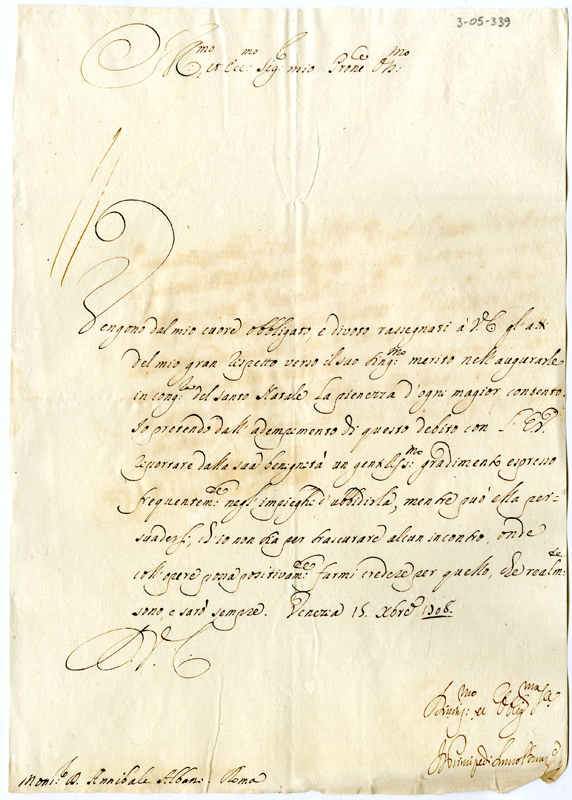 3-05-339
Ill.mo et Ecc.mo Sig.r mio Prone Oss.mo
Vengono dal mio cuore obbligato, e divoto rassegnati à V.E. gl'atti
del mio gran rispetto verso il suo sing.mo merito nell'augurarle
in cong.ra del Santo Natale la pienezza d'ogni magior contento.
Io pretendo dall'adempimento di questo debito con l'E.V.
riportare dalla sua benignità un gentiliss.mo gradimento espresso
frequentem.te negl'impieghi d'ubbidirla, mentre può ella per-
suadersi, ch'io non sia per trascurare alcun incontro, onde
coll'opere possa positivam.te farmi credere per quello, che realm.te
sono, e sarò sempre. Venezia 15. Xbre 1708.
D. V. E.
Monsig.r D. Annibale Albani Roma